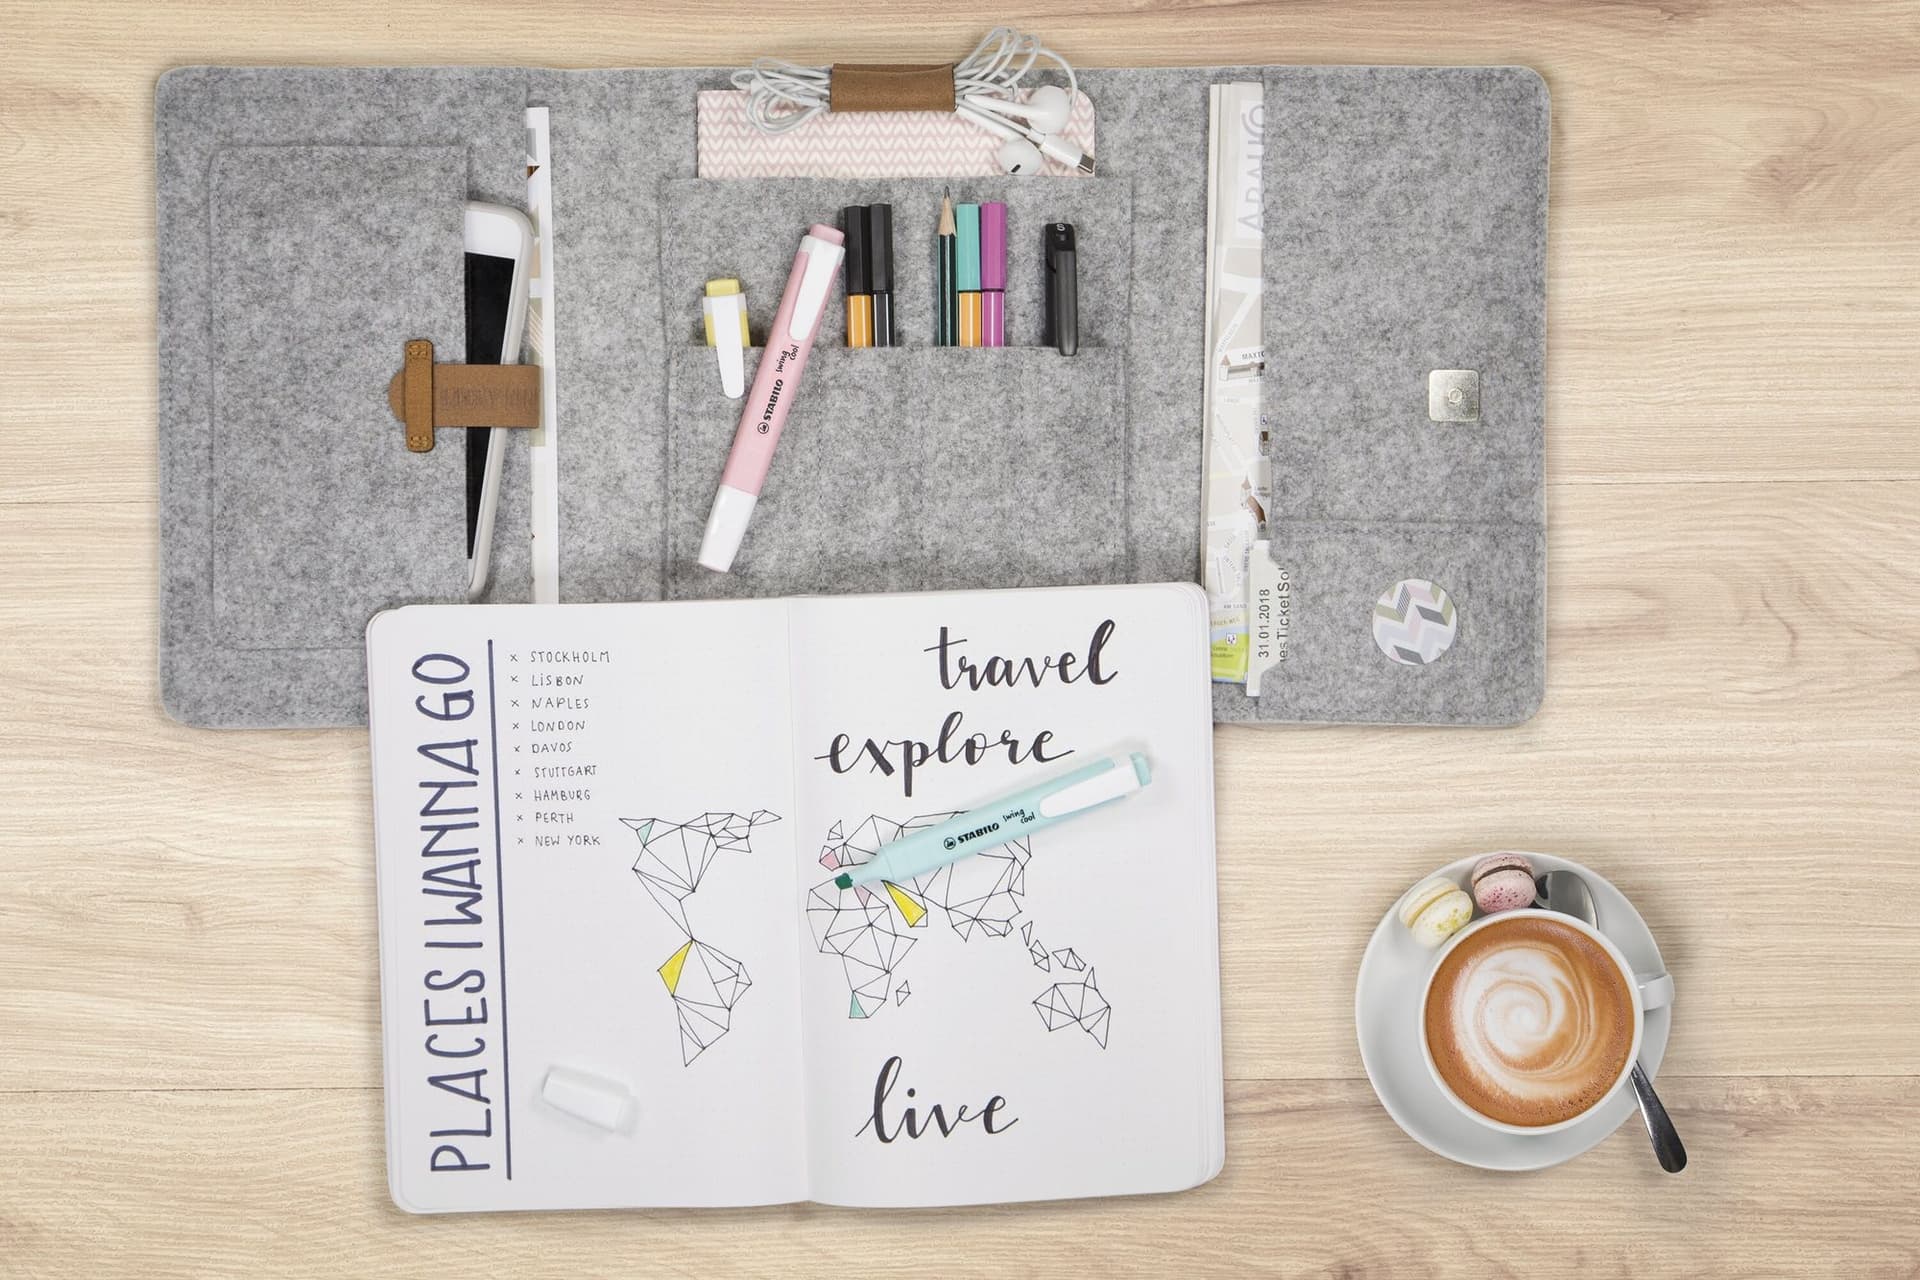 STABILO swing cool
S
31.01.2018
PLACES I WANNA GO
× STOCKHOLM
× LISBON
× NAPLES
× LONDON
× DAVOS
× STUTTGART
× HAMBURG
× PERTH
× NEW YORK
travel
explore
STABILO swing cool
live